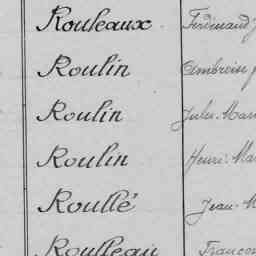 Rouleaux Ferdinand
Roulin Ambroise
Roulin Jules Mar
Roulin Henri Mar
Roullé Jean-M
Roulleau Franço